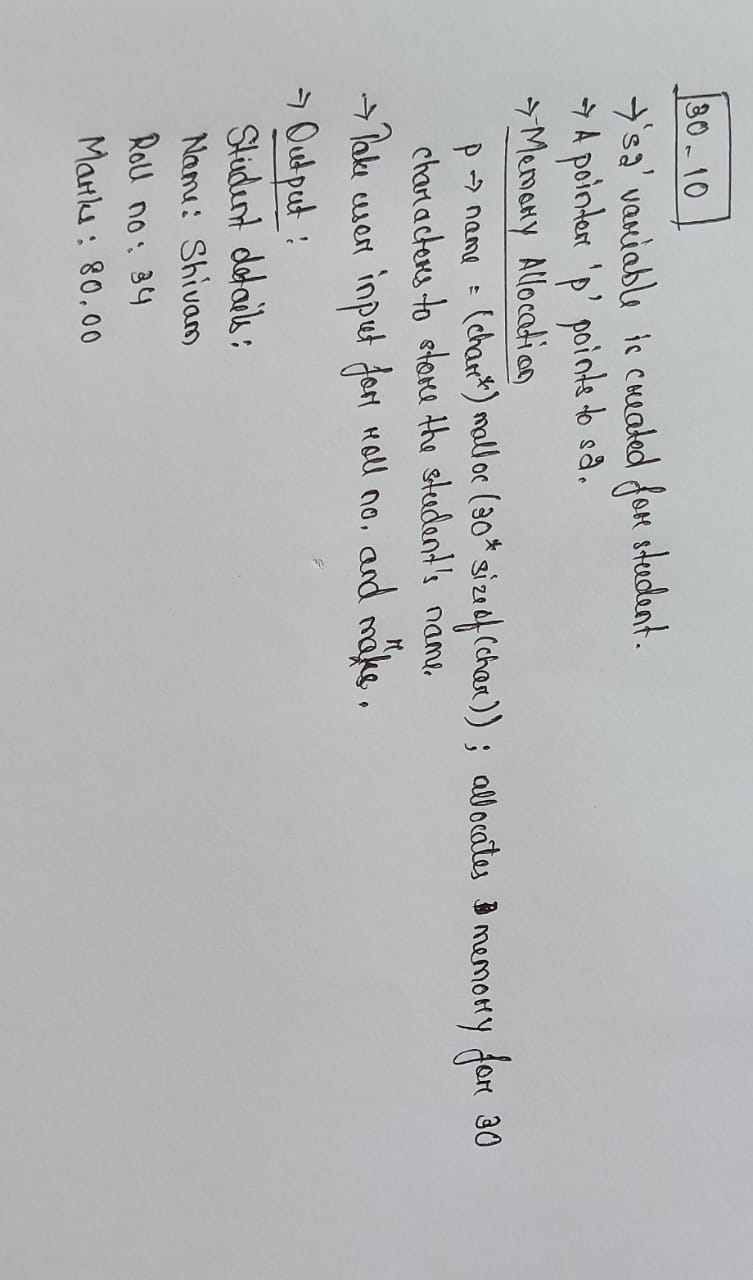 30-10
→ 's2' variable is created for student.
→ A pointer 'p' points to s2.
→ Memory Allocation
p → name = (char*) malloc (30* sizeof(char)); allocates memory for 30
characters to store the student's name.
→ Take user input for roll no. and marks.
→ Output:
Student details:
Name: Shivam
Roll no: 34
Marks: 80.00